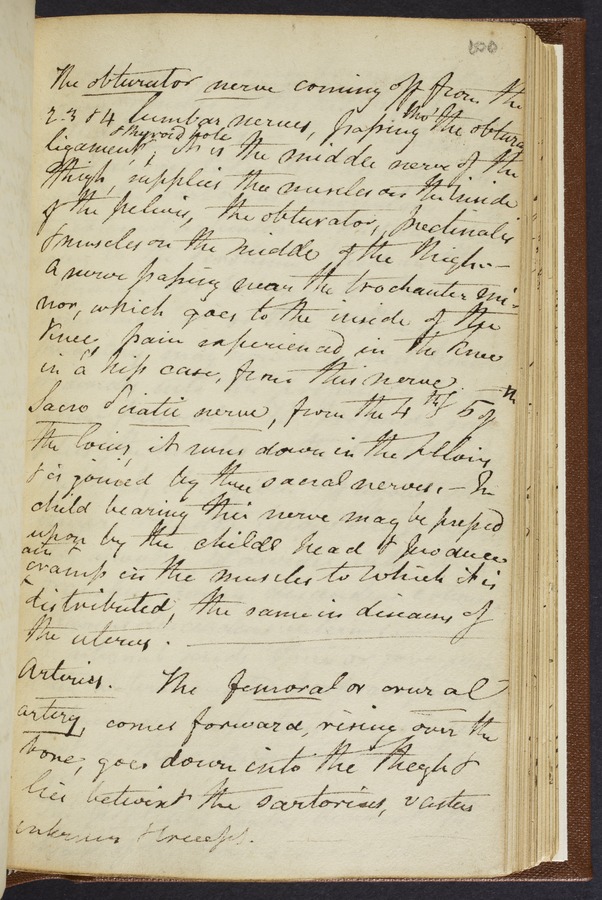 100
The obturator nerve coming off from the
2-3 & 4 lumbar nerves, passing thro' the obtura
ligament, & thyroid hole, it is the middle nerve of the
thigh, supplies the muscles on the inside
of the pelvis, the obturator, pectinalis
& muscles on the middle of the thigh. —
A nerve passing near the trochanter mi-
nor, which goes to the inside of the
knee, pain experienced in the knee
in a hip case, from this nerve.
Sacro Sciatic nerve, from the 4th & 5th of
the loins, it runs down in the pelvis
& is joined by three sacral nerves. — In
child bearing this nerve may be pressed
upon by the childs head & produces
a cramp in the muscles to which it is
distributed, the same in diseases of
the uterus. —
Arteries. The femoral or crural
artery, comes forward, rising over the
bone, goes down into the thigh &
lies betwixt the sartorius, vastus
internus & triceps.